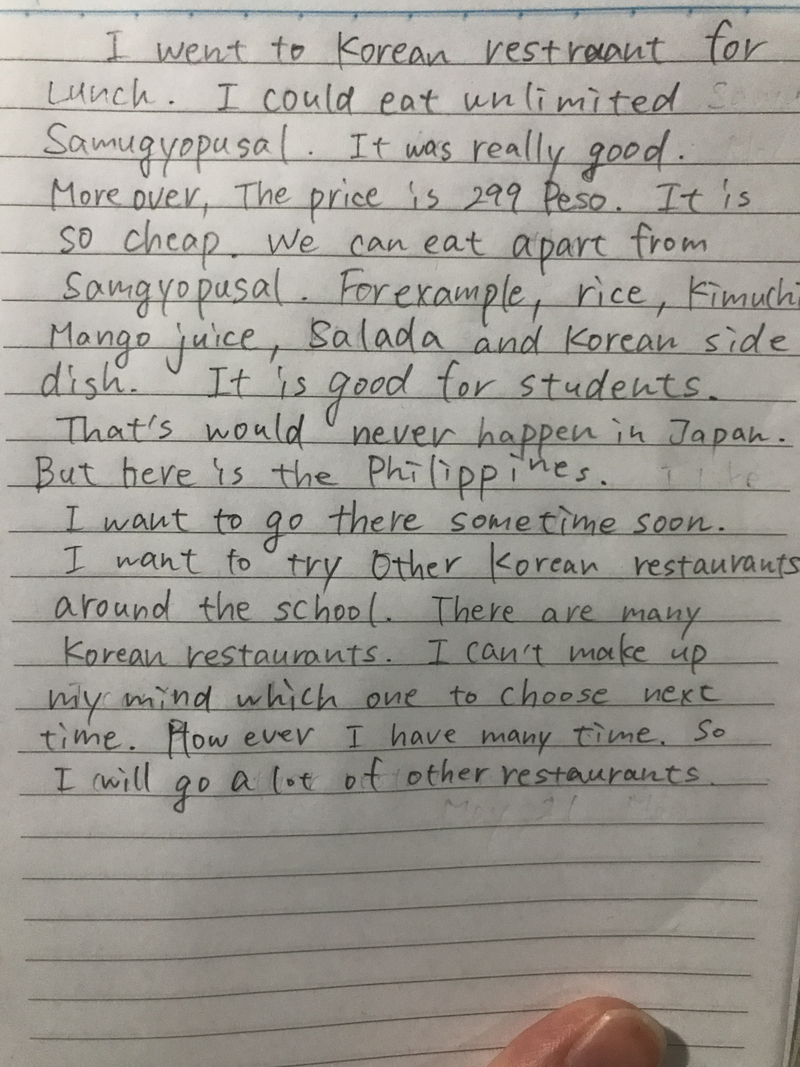 I went to Korean restraant for
Lunch. I could eat unlimited
Samugyopusal. It was really good.
More over, The price is 299 Peso. It is
so cheap. We can eat apart from
Samgyopusal. For example, rice, Kimuchi
Mango juice, Salada and Korean side
dish. It is good for students.
That's would never happen in Japan.
But here is the Philippines.
I want to go there sometime soon.
I want to try Other Korean restaurants
around the school. There are many
Korean restaurants. I can't make up
my mind which one to choose next
time. How ever I have many time. So
I will go a lot of other restaurants.